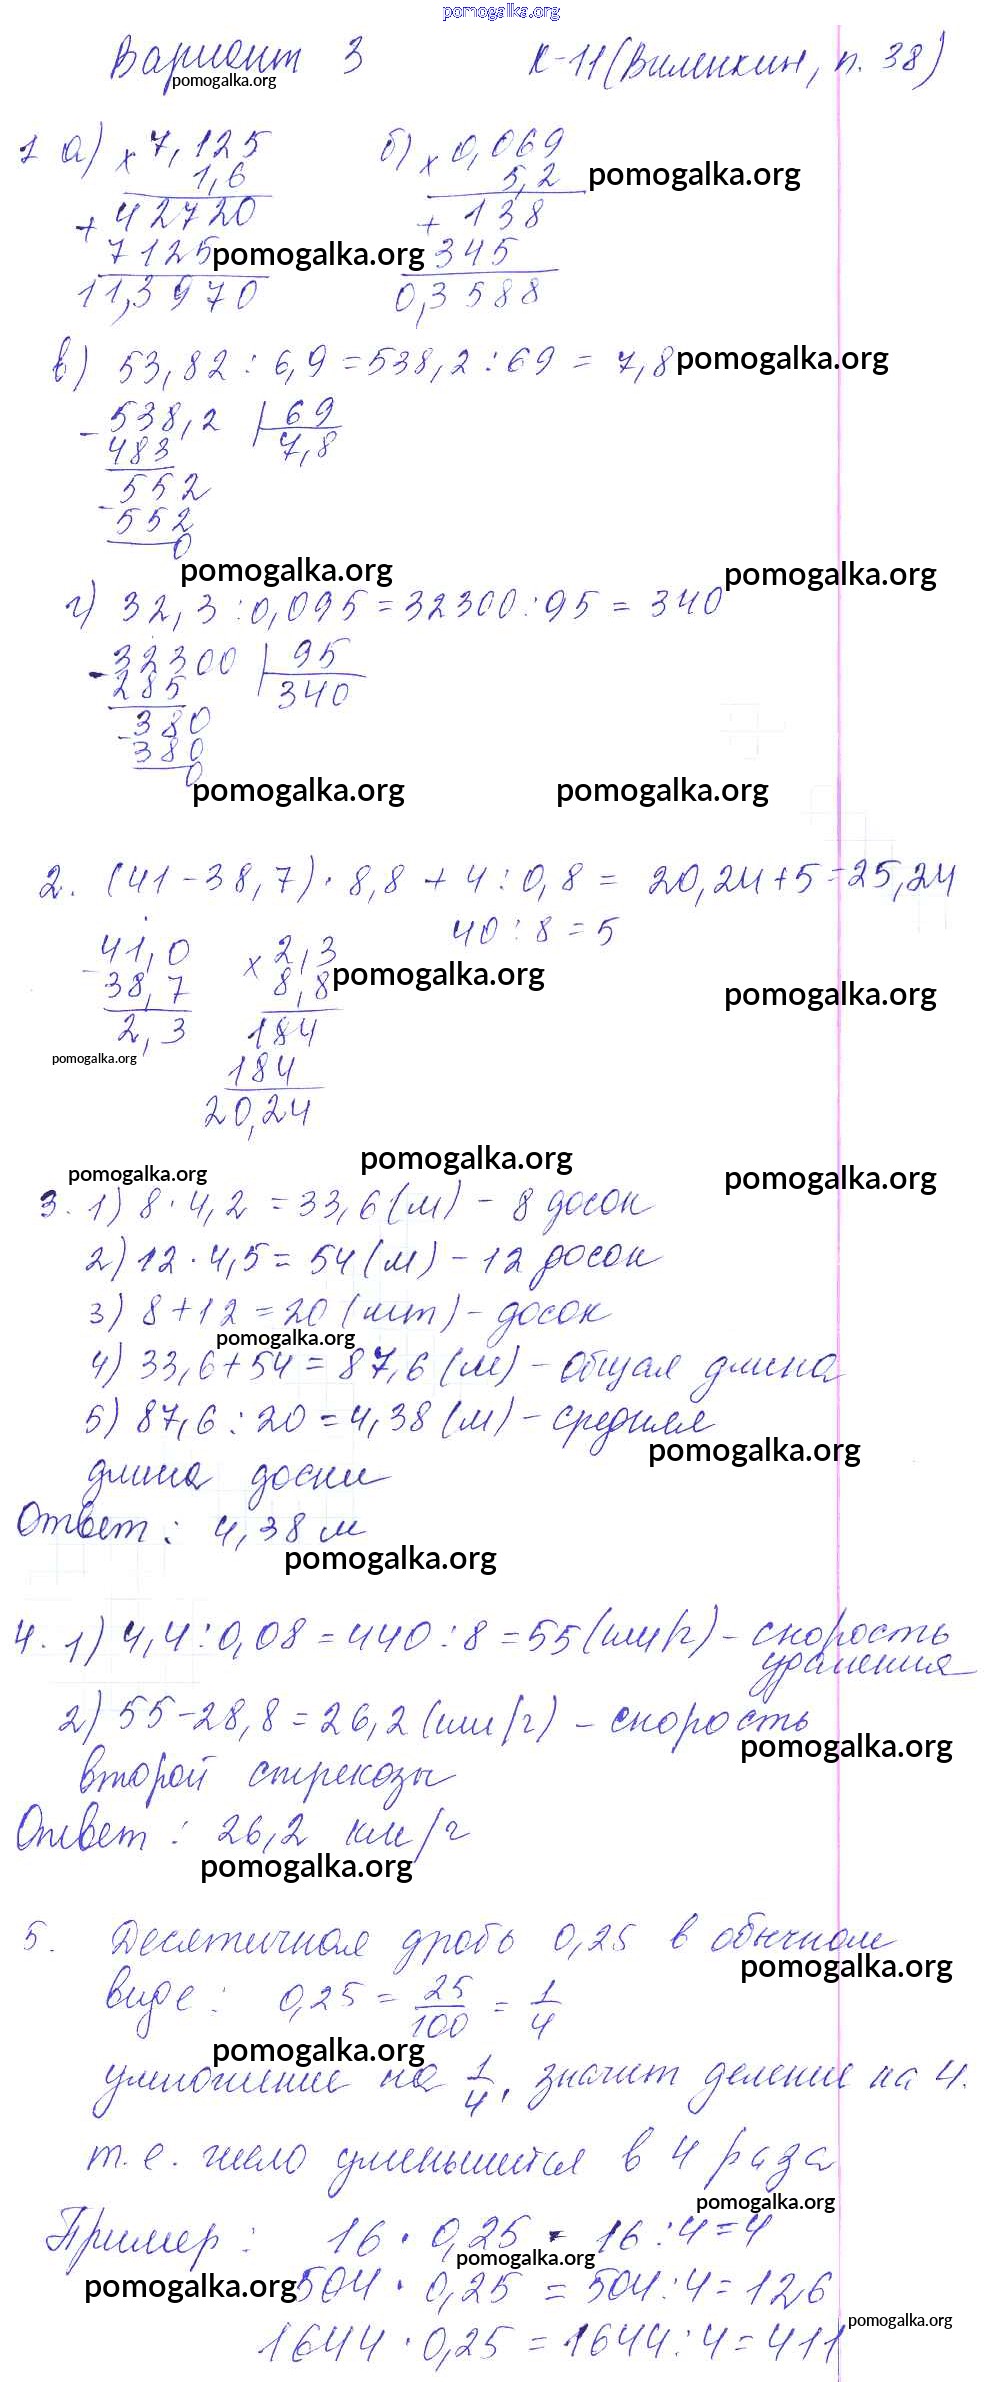 pomogalka.org
Вариант 3 К-11 (Виленкин, п. 38)
pomogalka.org
1 а) × 7,125 б) × 0,069
1,6 5,2 pomogalka.org
+ 42720 + 138
7125 pomogalka.org 345
11,3970 0,3588
в) 53,82 : 6,9 = 538,2 : 69 = 7,8 pomogalka.org
- 538,2 | 69
483 7,8
- 552
552
0
pomogalka.org pomogalka.org
г) 32,3 : 0,095 = 32300 : 95 = 340
- 32300 | 95
285 340
- 380
380
0
pomogalka.org pomogalka.org
2. (41 - 38,7) · 8,8 + 4 : 0,8 = 20,24 + 5 = 25,24
40 : 8 = 5
- 41,0 × 2,3
38,7 8,8 pomogalka.org pomogalka.org
2,3 184
pomogalka.org
184
20,24
pomogalka.org pomogalka.org pomogalka.org
3. 1) 8 · 4,2 = 33,6 (м) - 8 досок
2) 12 · 4,5 = 54 (м) - 12 досок
3) 8 + 12 = 20 (шт) - досок
pomogalka.org
4) 33,6 + 54 = 87,6 (м) - общая длина
5) 87,6 : 20 = 4,38 (м) - средняя
pomogalka.org
длина доски
Ответ: 4,38 м
pomogalka.org
4. 1) 4,4 : 0,08 = 440 : 8 = 55 (км/ч) - скорость
удаления
2) 55 - 28,8 = 26,2 (км/ч) - скорость
pomogalka.org
второй стрекозы
Ответ: 26,2 км/ч
pomogalka.org
5. Десятичная дробь 0,25 в обычном
pomogalka.org
виде: 0,25 = 25/100 = 1/4
pomogalka.org
умножение на 1/4, значит деление на 4.
т.е. число уменьшится в 4 раза
pomogalka.org
Пример: 16 · 0,25 = 16 : 4 = 4
pomogalka.org
pomogalka.org 504 · 0,25 = 504 : 4 = 126
pomogalka.org
1644 · 0,25 = 1644 : 4 = 411